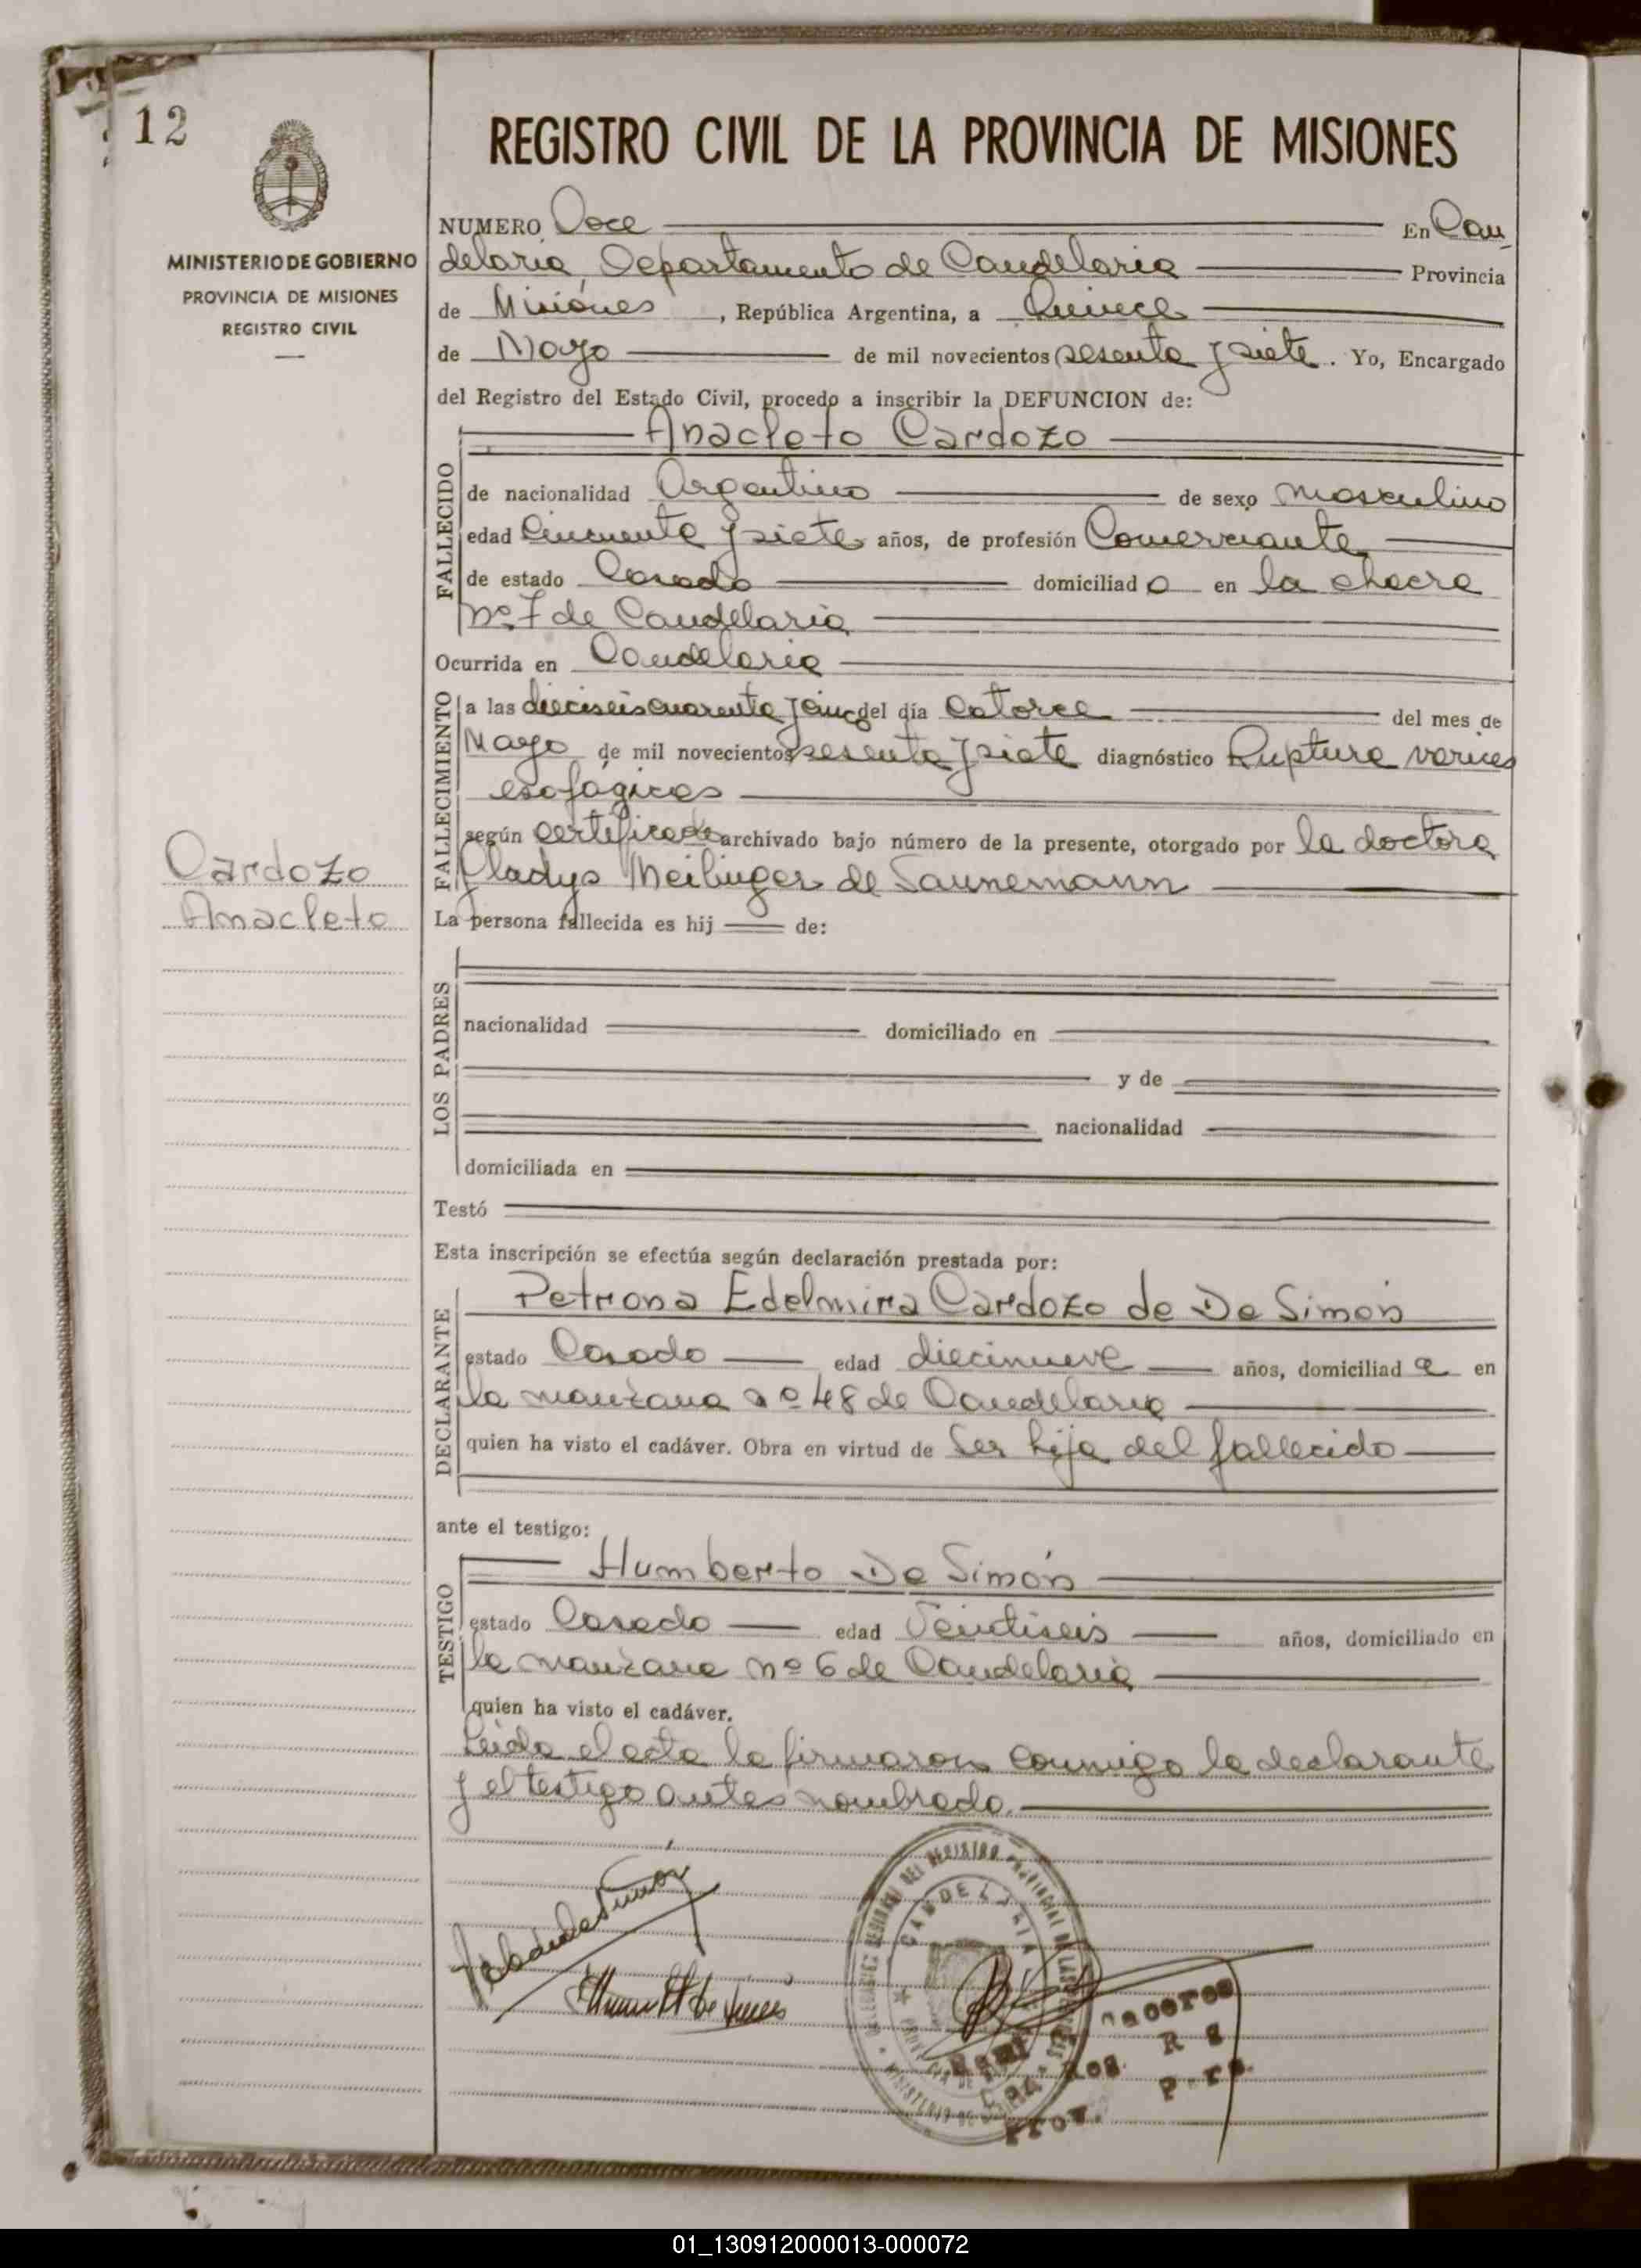 12
MINISTERIO DE GOBIERNO
PROVINCIA DE MISIONES
REGISTRO CIVIL
REGISTRO CIVIL DE LA PROVINCIA DE MISIONES
NUMERO Doce En Can
delaria, Departamento de Candelaria Provincia
de Misiones, República Argentina, a Quince
de Mayo de mil novecientos sesenta y siete. Yo, Encargado
del Registro del Estado Civil, procedo a inscribir la DEFUNCION de:
Anacleto Cardozo
FALLECIDO
de nacionalidad Argentino de sexo masculino
edad Cincuenta y siete años, de profesión Comerciante
de estado Casado domiciliad o en la chacra
nº 7 de Candelaria
Ocurrida en Candelaria
FALLECIMIENTO
a las dieciseis cuarenta y cinco del día Catorce del mes de
Mayo de mil novecientos sesenta y siete diagnóstico Ruptura varices
esofágicas
según certificado archivado bajo número de la presente, otorgado por la doctora
Gladys Meilinger de Saunemann
Cardozo
Anacleto
La persona fallecida es hij de:
LOS PADRES
nacionalidad domiciliado en
y de
nacionalidad
domiciliada en
Testó
Esta inscripción se efectúa según declaración prestada por:
DECLARANTE
Petrona Edelmira Cardozo de De Simón
estado Casada edad diecinueve años, domiciliad a en
la manzana nº 48 de Candelaria
quien ha visto el cadáver. Obra en virtud de Ser hija del fallecido
ante el testigo:
TESTIGO
Humberto De Simón
estado Casado edad Veintiseis años, domiciliado en
la manzana nº 6 de Candelaria
quien ha visto el cadáver.
Leida el acta la firmaron conmigo la declarante
y el testigo antes nombrado.
CANDELARIA
01_130912000013-000072